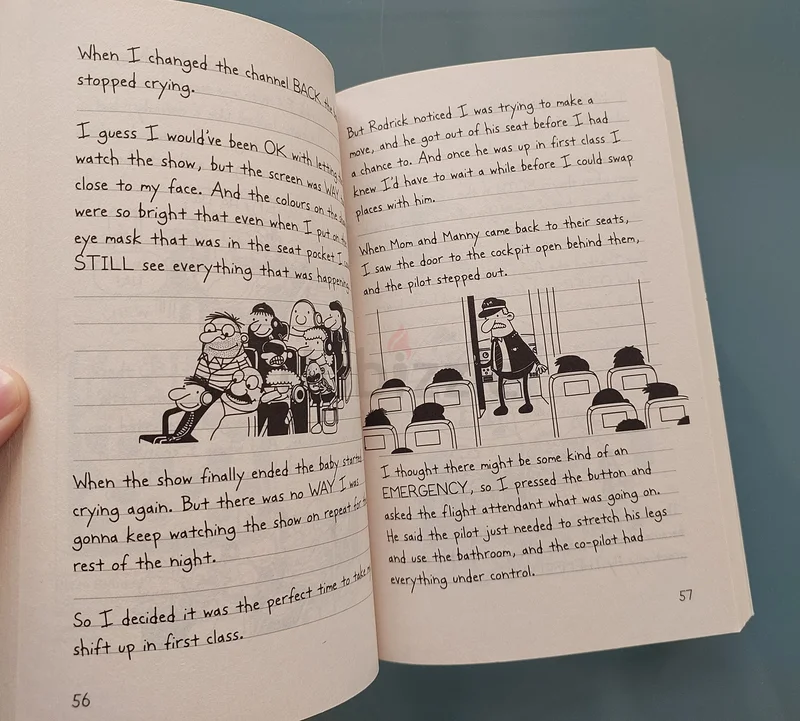 When I changed the channel BACK the
stopped crying.
I guess I would've been OK with letting
watch the show, but the screen was WAY
close to my face. And the colours on the
were so bright that even when I put on
eye mask that was in the seat pocket I
STILL see everything that was happening
When the show finally ended the baby started
crying again. But there was no WAY I was
gonna keep watching the show on repeat for
rest of the night.
So I decided it was the perfect time to take
shift up in first class.
56
But Rodrick noticed I was trying to make a
move, and he got out of his seat before I had
a chance to. And once he was up in first class I
knew I'd have to wait a while before I could swap
places with him.
When Mom and Manny came back to their seats,
I saw the door to the cockpit open behind them,
and the pilot stepped out.
I thought there might be some kind of an
EMERGENCY, so I pressed the button and
asked the flight attendant what was going on.
He said the pilot just needed to stretch his legs
and use the bathroom, and the co-pilot had
everything under control.
57